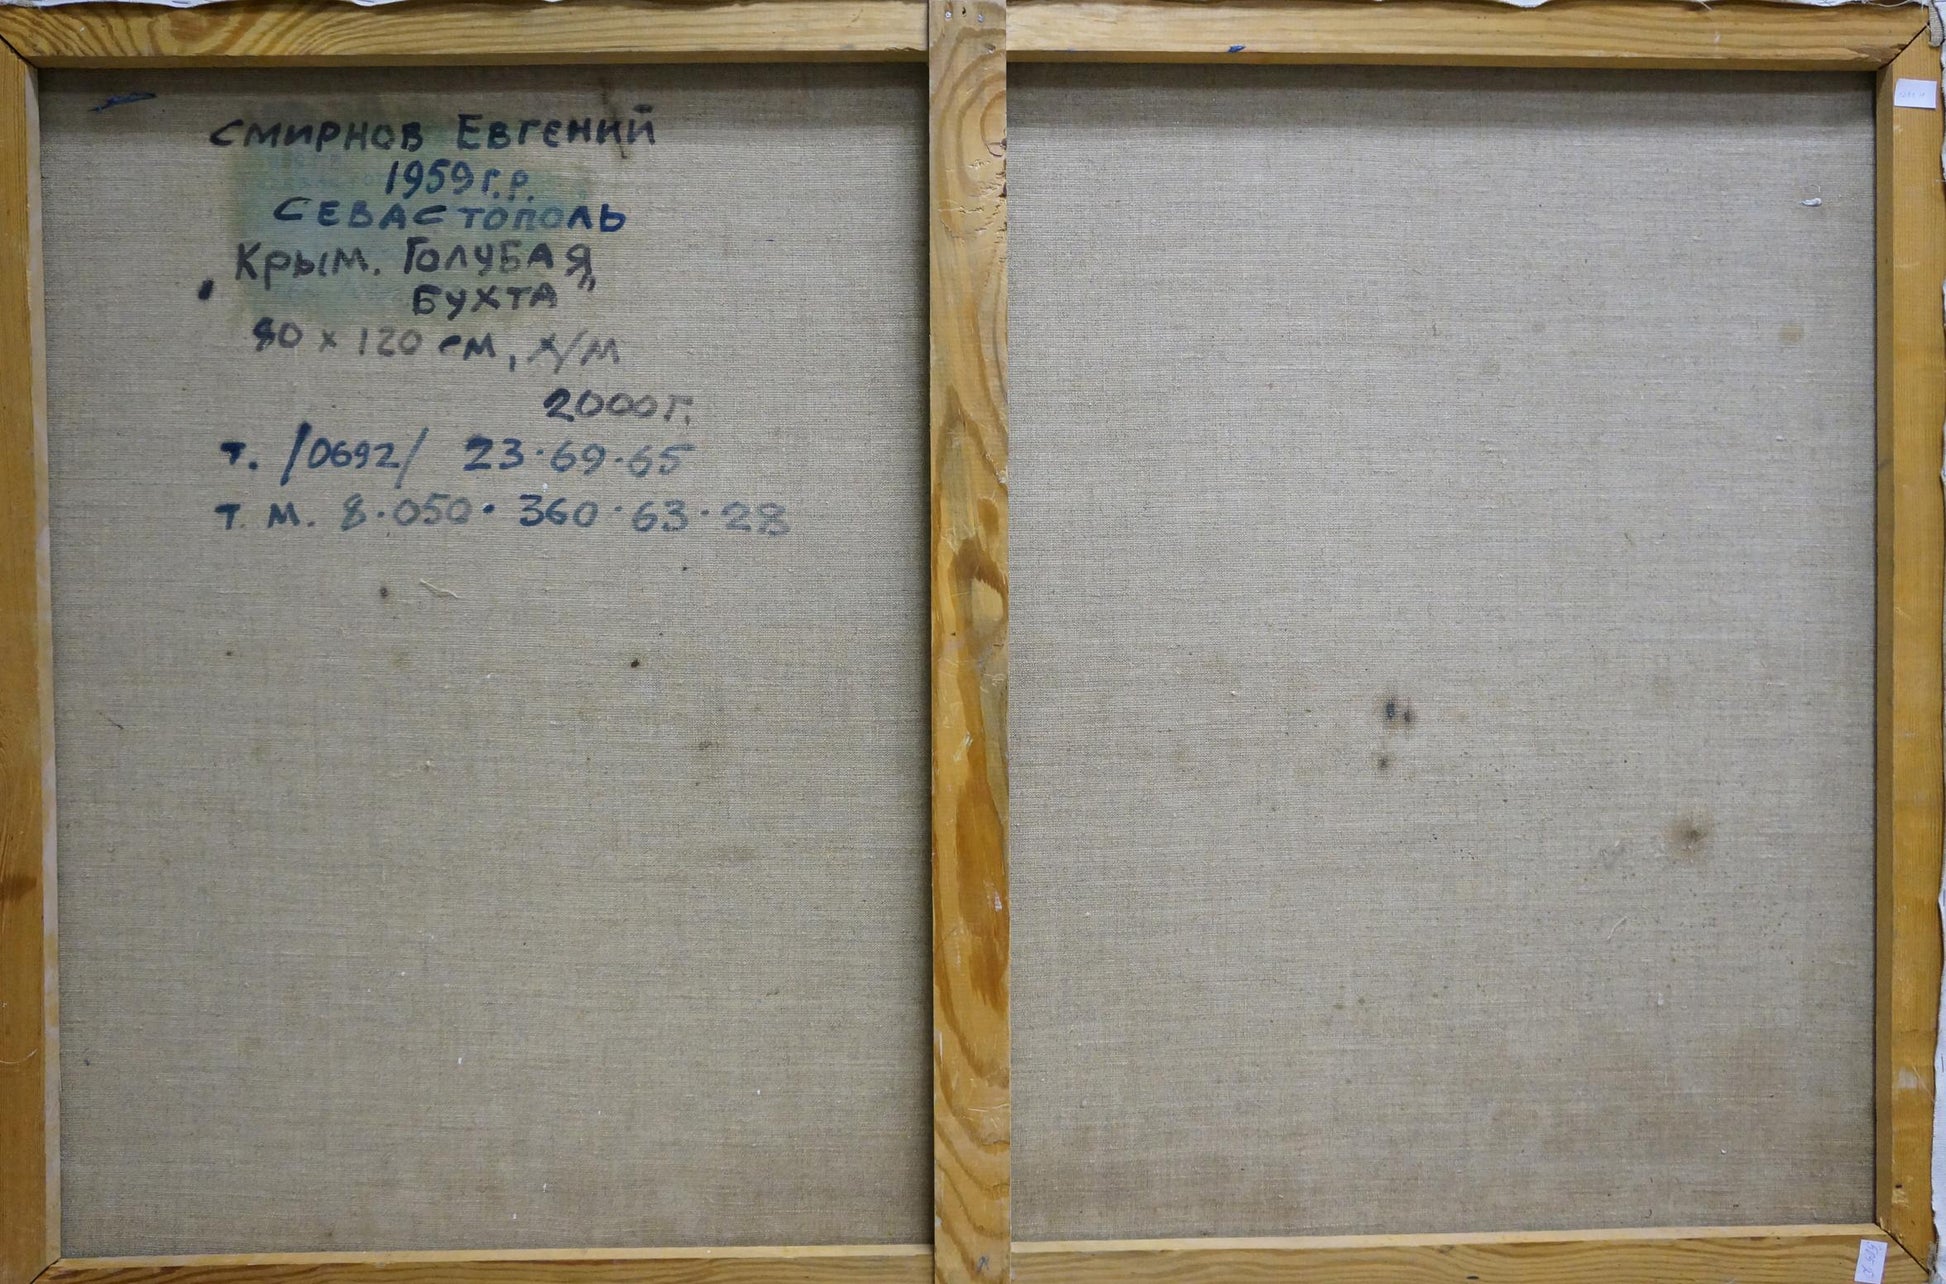 СМИРНОВ ЕВГЕНИЙ
1959 г.р.
СЕВАСТОПОЛЬ
"Крым. ГОЛУБАЯ
БУХТА"
80 х 120 см, х/м
2000 г.
т. /0692/ 23·69·65
т. м. 8·050·360·63·28